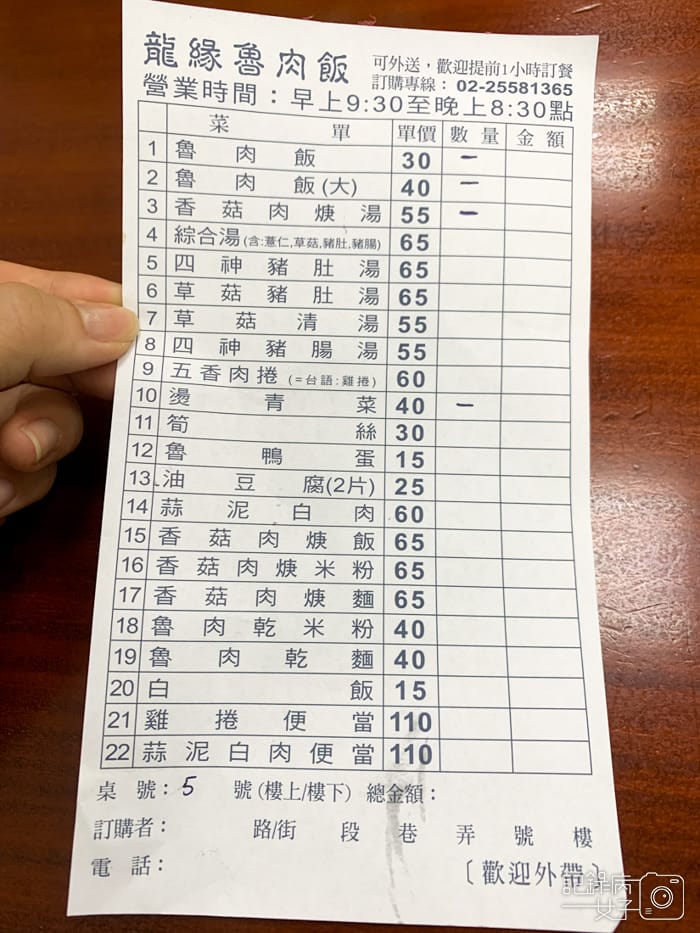 龍緣魯肉飯
可外送，歡迎提前1小時訂餐
訂購專線：02-25581365
營業時間：早上9:30至晚上8:30點
菜單 單價 數量 金額
1 魯肉飯 30 一
2 魯肉飯(大) 40 一
3 香菇肉焿湯 55 一
4 綜合湯(含:薏仁,草菇,豬肚,豬腸) 65
5 四神豬肚湯 65
6 草菇豬肚湯 65
7 草菇清湯 55
8 四神豬腸湯 55
9 五香肉捲(=台語:雞捲) 60
10 燙青菜 40 一
11 筍絲 30
12 魯鴨蛋 15
13 油豆腐(2片) 25
14 蒜泥白肉 60
15 香菇肉焿飯 65
16 香菇肉焿米粉 65
17 香菇肉焿麵 65
18 魯肉乾米粉 40
19 魯肉乾麵 40
20 白飯 15
21 雞捲便當 110
22 蒜泥白肉便當 110
桌號：5 號(樓上/樓下) 總金額：
訂購者： 路/街 段 巷 弄 號 樓
電話： 〔歡迎外帶〕
記錄病
女子